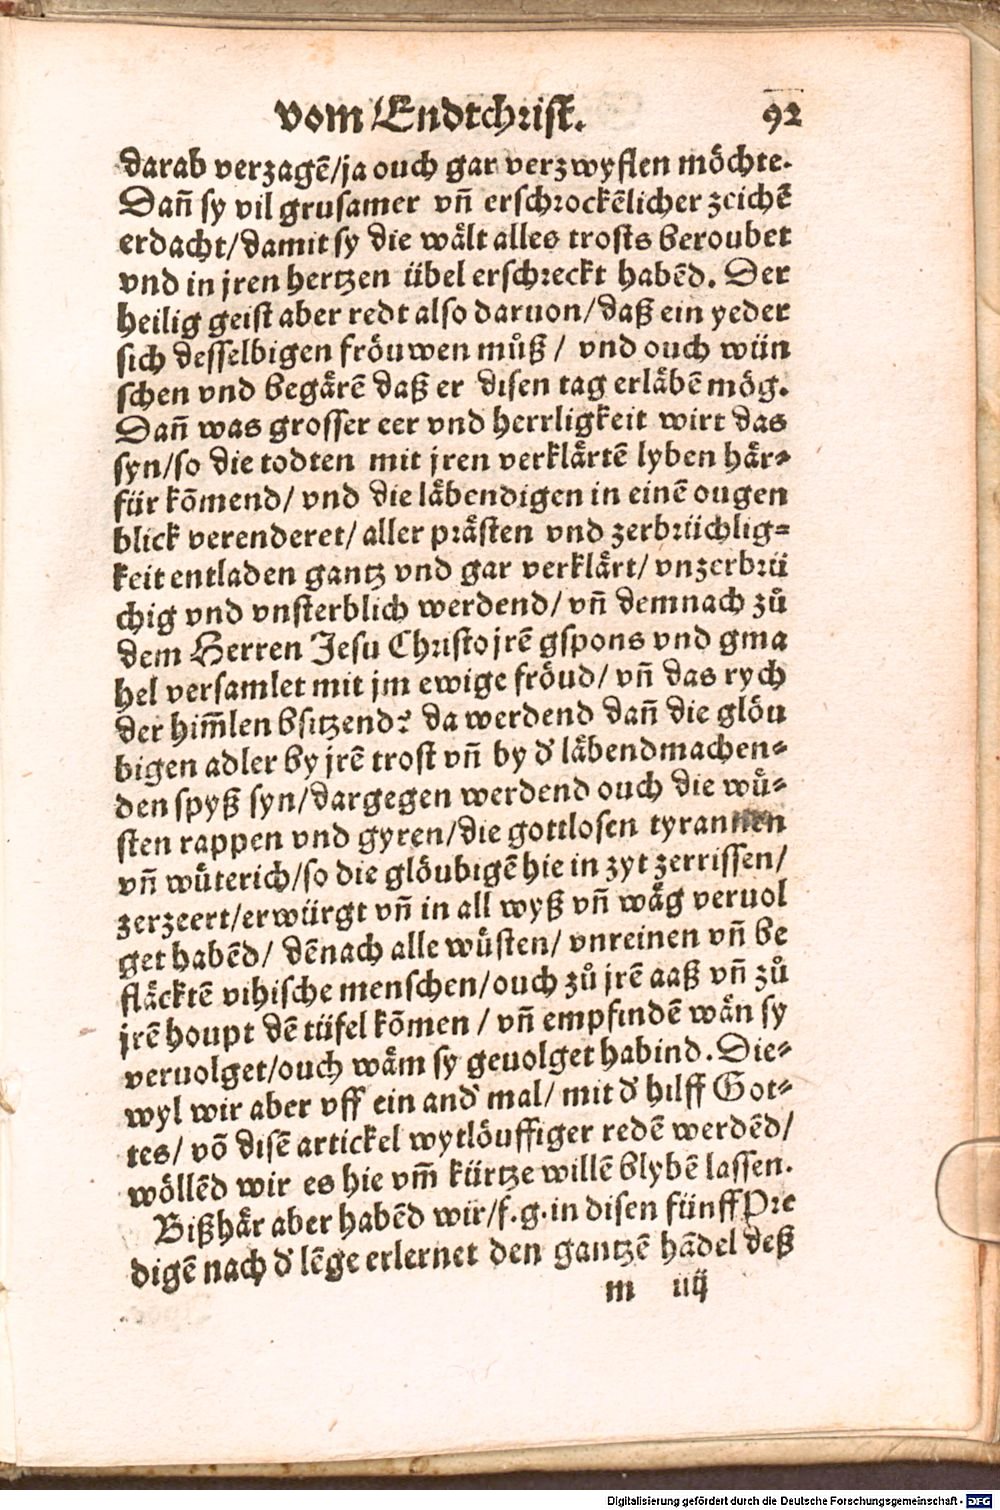 vom Endtchrist. 92
darab verzagē/ja ouch gar verzwyflen möchte.
Dañ sy vil grusamer vñ erschrockēlicher zeichē
erdacht/damit sy die wält alles trosts beroubet
vnd in jren hertzen übel erschreckt habēd. Der
heilig geist aber redt also daruon/daß ein yeder
sich desselbigen fröuwen můß / vnd ouch wün
schen vnd begärē daß er disen tag erläbē mög.
Dañ was grosser eer vnd herrligkeit wirt das
syn/so die todten mit jren verklärtē lyben här⸗
für kōmend/ vnd die läbendigen in einē ougen
blick verenderet/ aller prästen vnd zerbrüchlig⸗
keit entladen gantz vnd gar verklärt/ vnzerbrü
chig vnd vnsterblich werdend/ vñ demnach zů
dem Herren Jesu Christo jrē gspons vnd gma
hel versamlet mit jm ewige fröud/ vñ das rych
der him̄len bsitzend? da werdend dañ die glöu
bigen adler by jrē trost vñ by d' läbendmachen⸗
den spyß syn/dargegen werdend ouch die wů⸗
sten rappen vnd gyren/die gottlosen tyrannen
vñ wüterich/so die glöubigē hie in zyt zerrissen/
zerzeert/erwürgt vñ in all wyß vñ wäg veruol
get habēd/ dēnach alle wůsten/ vnreinen vñ be
fläcktē vihische menschen/ouch zů jrē aaß vñ zů
jrē houpt dē tüfel kōmen / vñ empfindē wän sy
veruolget/ouch wäm sy geuolget habind. Die⸗
wyl wir aber vff ein and' mal/ mit d' hilff Got⸗
tes/ vō disē artickel wytlöuffiger redē werdēd/
wöllēd wir es hie vm̄ kürtze willē blybē lassen.
Bißhär aber habēd wir/f.g.in disen fünff Pre
digē nach d' lēge erlernet den gantzē hādel deß
m iiij
Digitalisierung gefördert durch die Deutsche Forschungsgemeinschaft - DFG